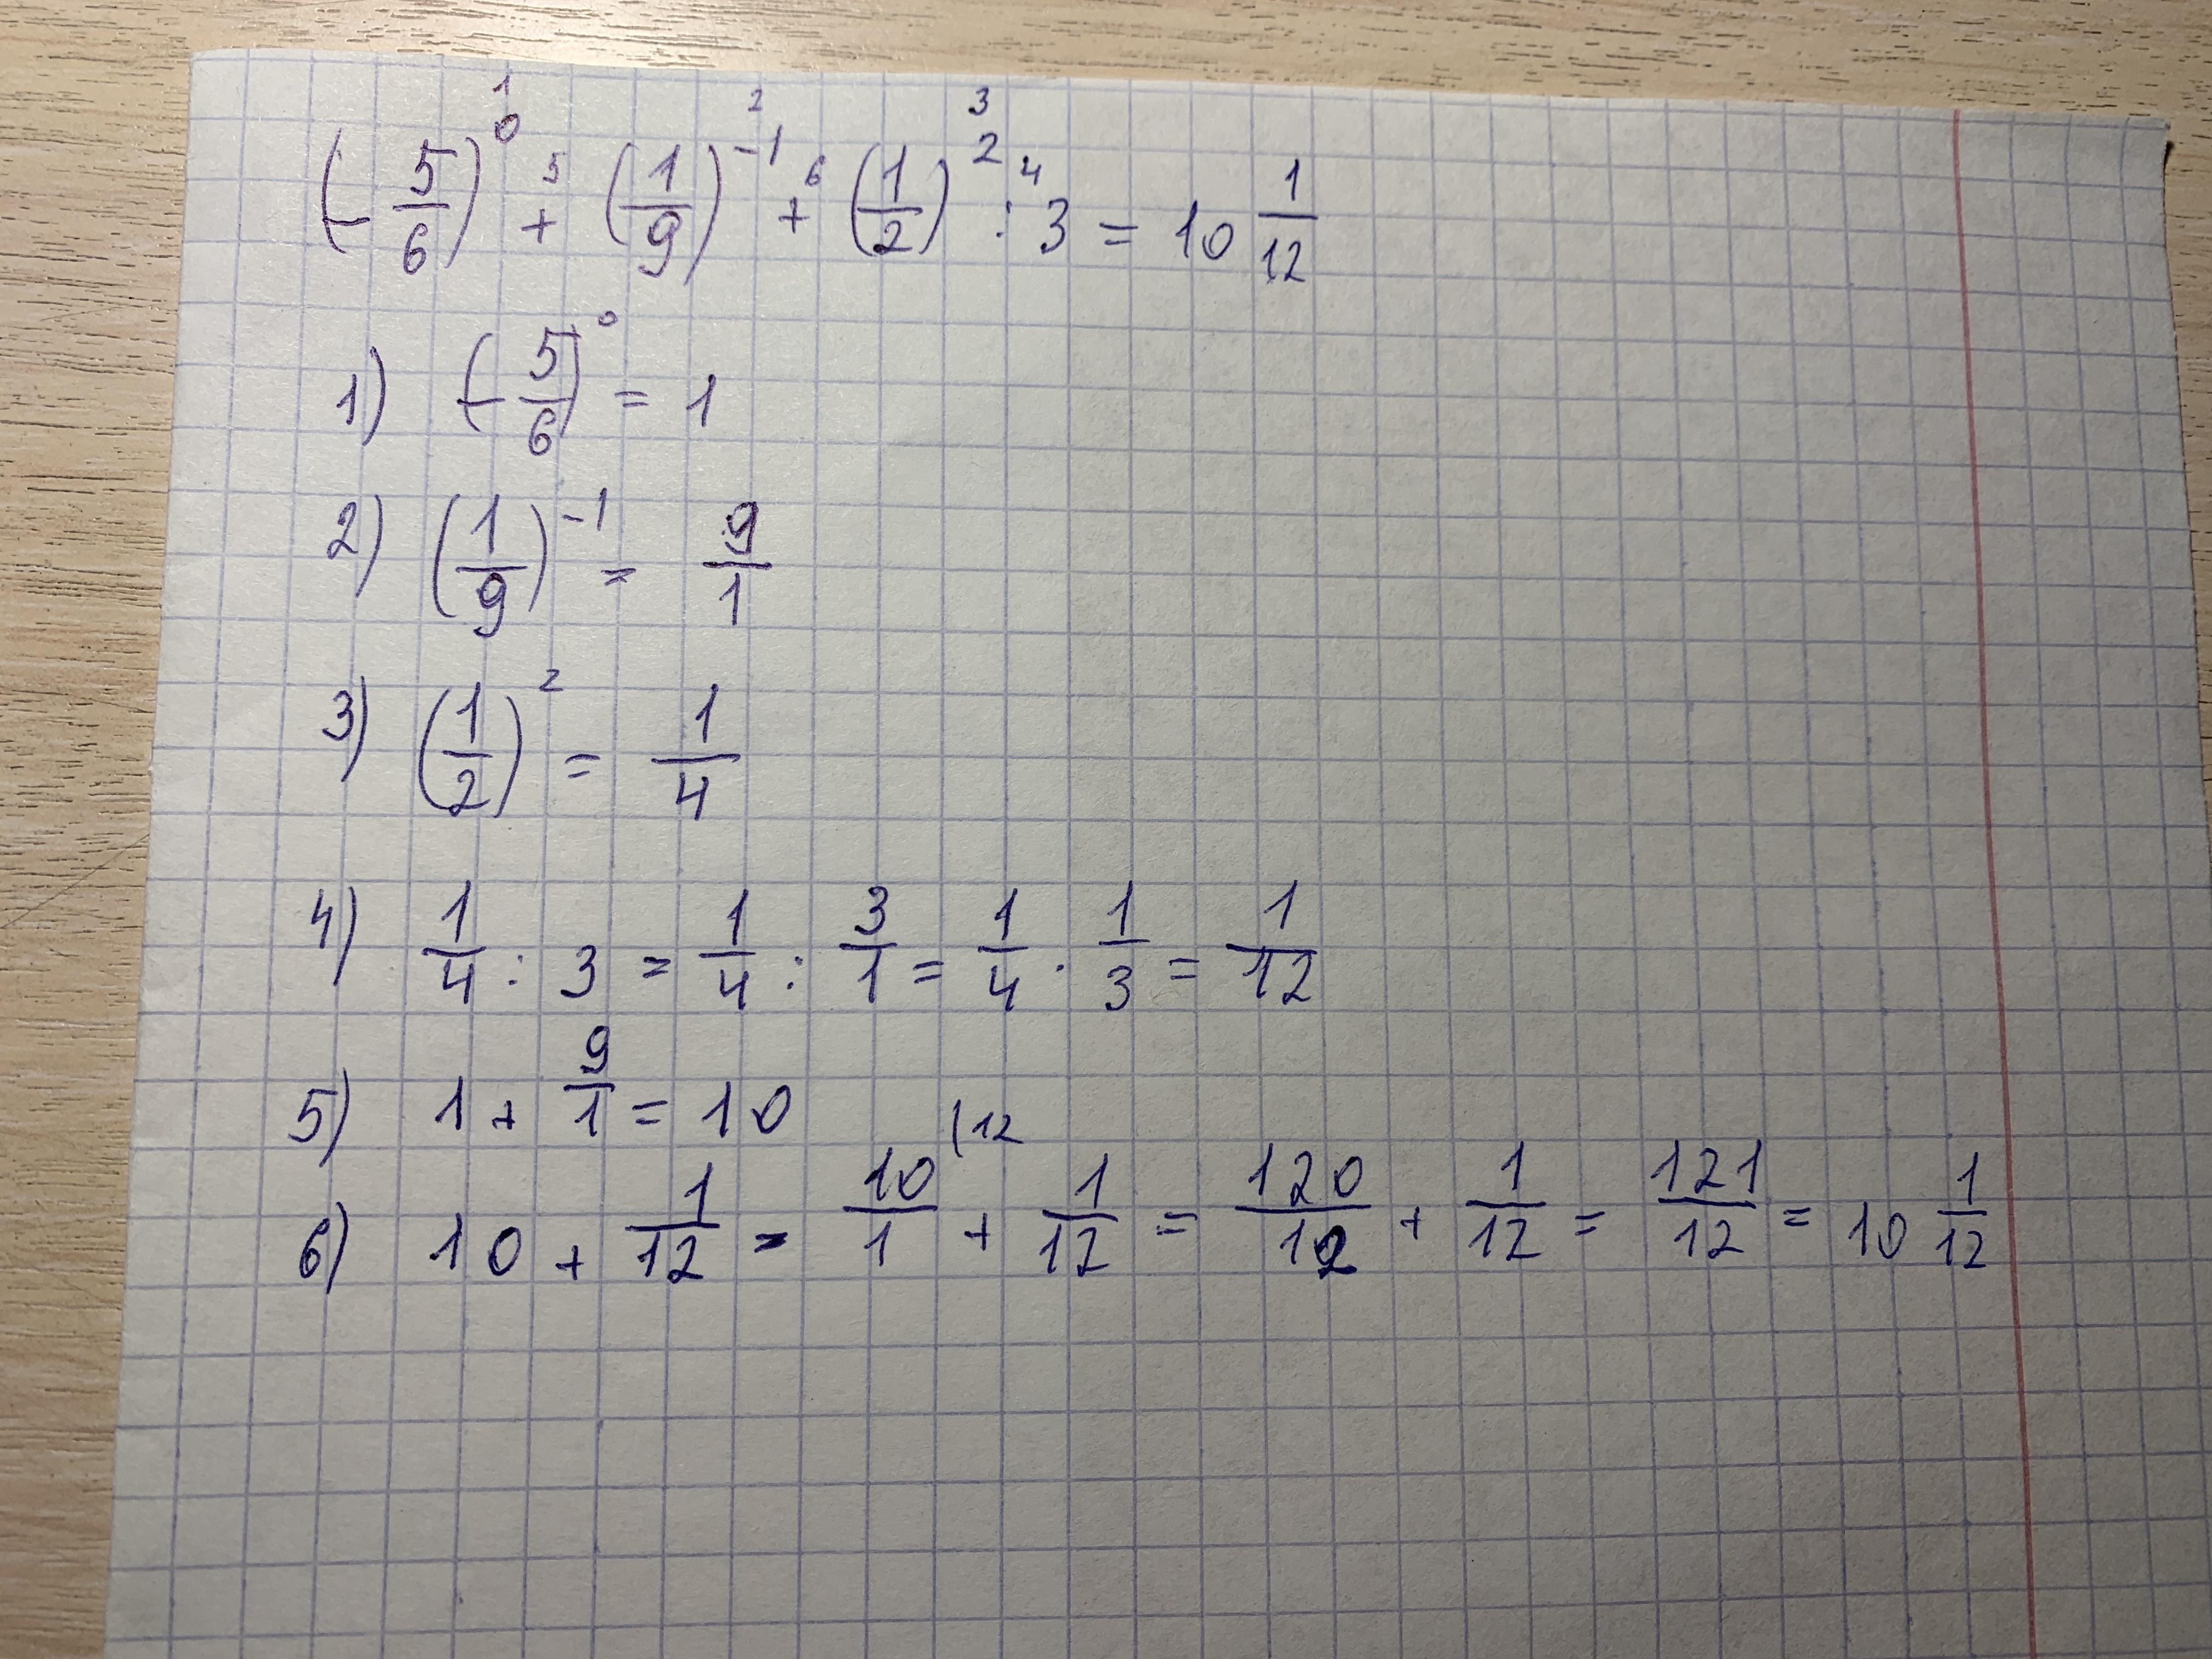 (-5/6)^0 + (1/9)^-1 + (1/2)^2 : 3 = 10 1/12
1 5 2 6 3 4
1) (-5/6)^0 = 1
2) (1/9)^-1 = 9/1
3) (1/2)^2 = 1/4
4) 1/4 : 3 = 1/4 : 3/1 = 1/4 · 1/3 = 1/12
5) 1 + 9/1 = 10
6) 10 + 1/12 = 10/1 (12 + 1/12 = 120/12 + 1/12 = 121/12 = 10 1/12